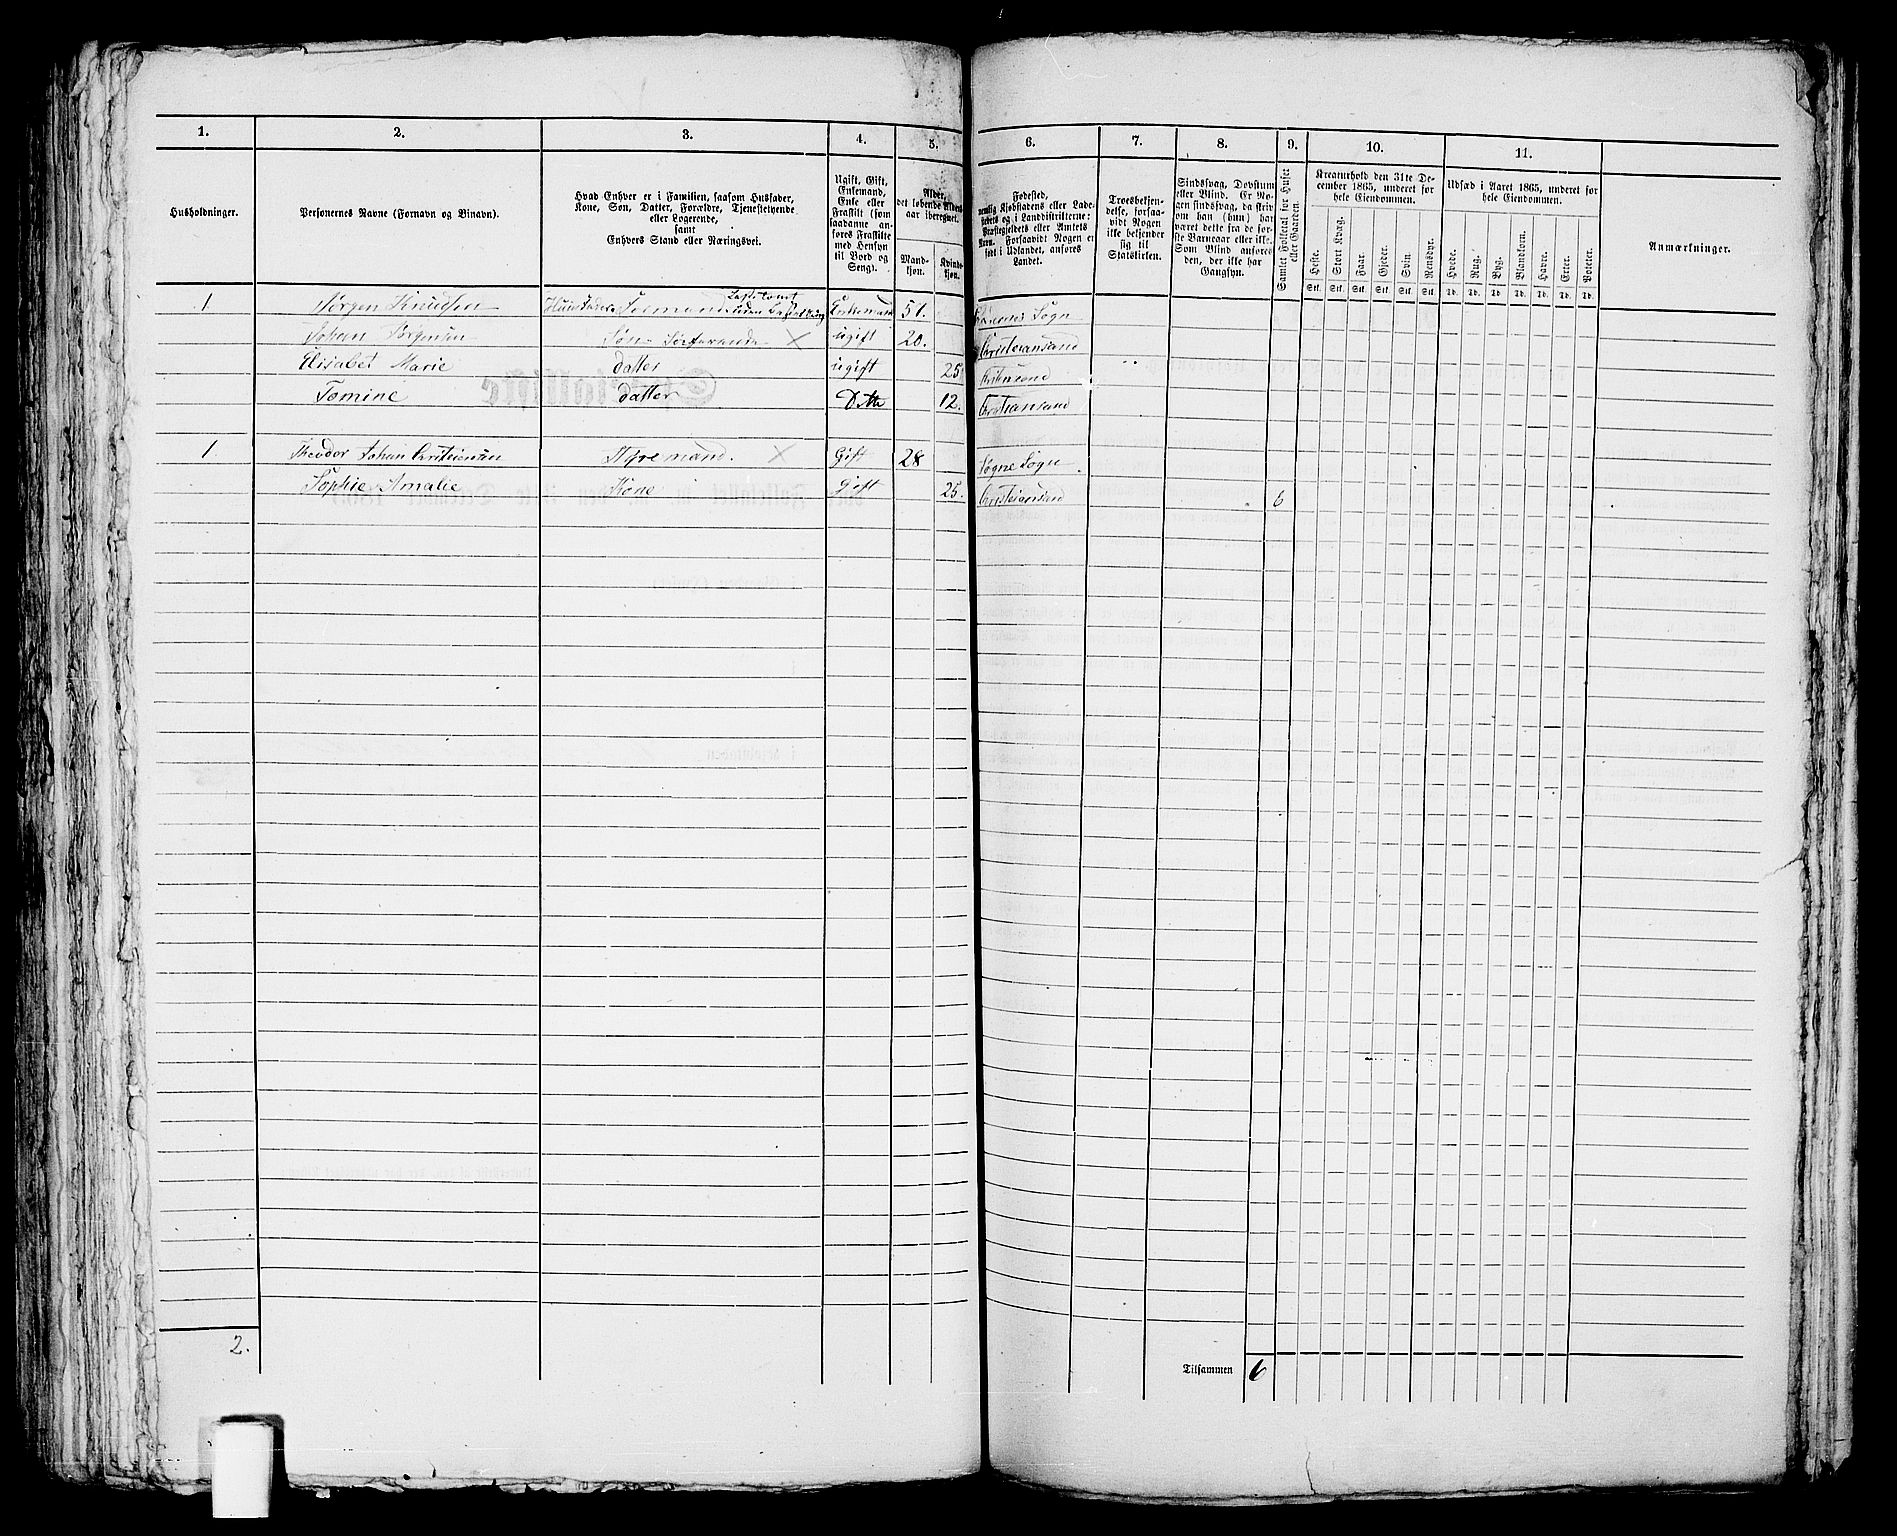 1. 2. 3. 4. 5. 6. 7. 8. 9. 10. 11.
Husholdninger.
Personernes Navne (Fornavn og Binavn).
Hvad Enhver er i Familien, saasom Husfader,
Kone, Søn, Datter, Forældre, Tjenestetyende
eller Logerende,
samt
Enhvers Stand eller Næringsvei.
Ugift, Gift,
Enkemand,
Enke eller
Fraskilt (som
saadanne an-
føres Fraskilte
med Hensyn
til Bord og
Seng).
Alder,
det løbende Alders-
aar iberegnet.
Mand-
kjøn.
Kvinde-
kjøn.
Fødested,
nemlig Kjøbstadens eller Lade-
stedets og i Landdistrikterne:
Præstegjeldets eller Amtets
Navn. Forsaavidt Nogen er
født i Udlandet, anføres
Landet.
Troesbekjen-
delse, forsaa-
vidt Nogen
ikke bekjender
sig til
Statskirken.
Sindssvag, Døvstum
eller Blind. Er No-
gen sindssvag, da skriv
om han (hun) har
været dette fra de før-
ste Barneaar eller ikke.
Som Blind anføres
den, der ikke har
Gangsyn.
Samlet Folketal for Huset
eller Gaarden.
Kreaturhold den 31te De-
cember 1865, underet for
hele Eiendommen.
Heste. Stort Kvæg. Faar. Gjeder. Svin. Rensdyr.
Stk. Stk. Stk. Stk. Stk. Stk.
Udsæd i Aaret 1865, underet for
hele Eiendommen.
Hvede. Rug. Byg. Blandkorn. Havre. Erter. Poteter.
Td. Td. Td. Td. Td. Td. Td.
Anmærkninger.
1 Jørgen Knudsen Huusfader Sømand uden Enkemand 51. Sogn
Johan Jørgensen Søn Søfarende × ugift 20. Christiansand
Elisabet Marie datter ugift 25 Christiansand
Tomine datter Ditto 12. Christiansand
1 Theodor Johan Christensen Styremand. × Gift 28 Søgne Sogn.
Sophie Amalie Kone Gift 25. Christiansand 6
2.
Tilsammen 6